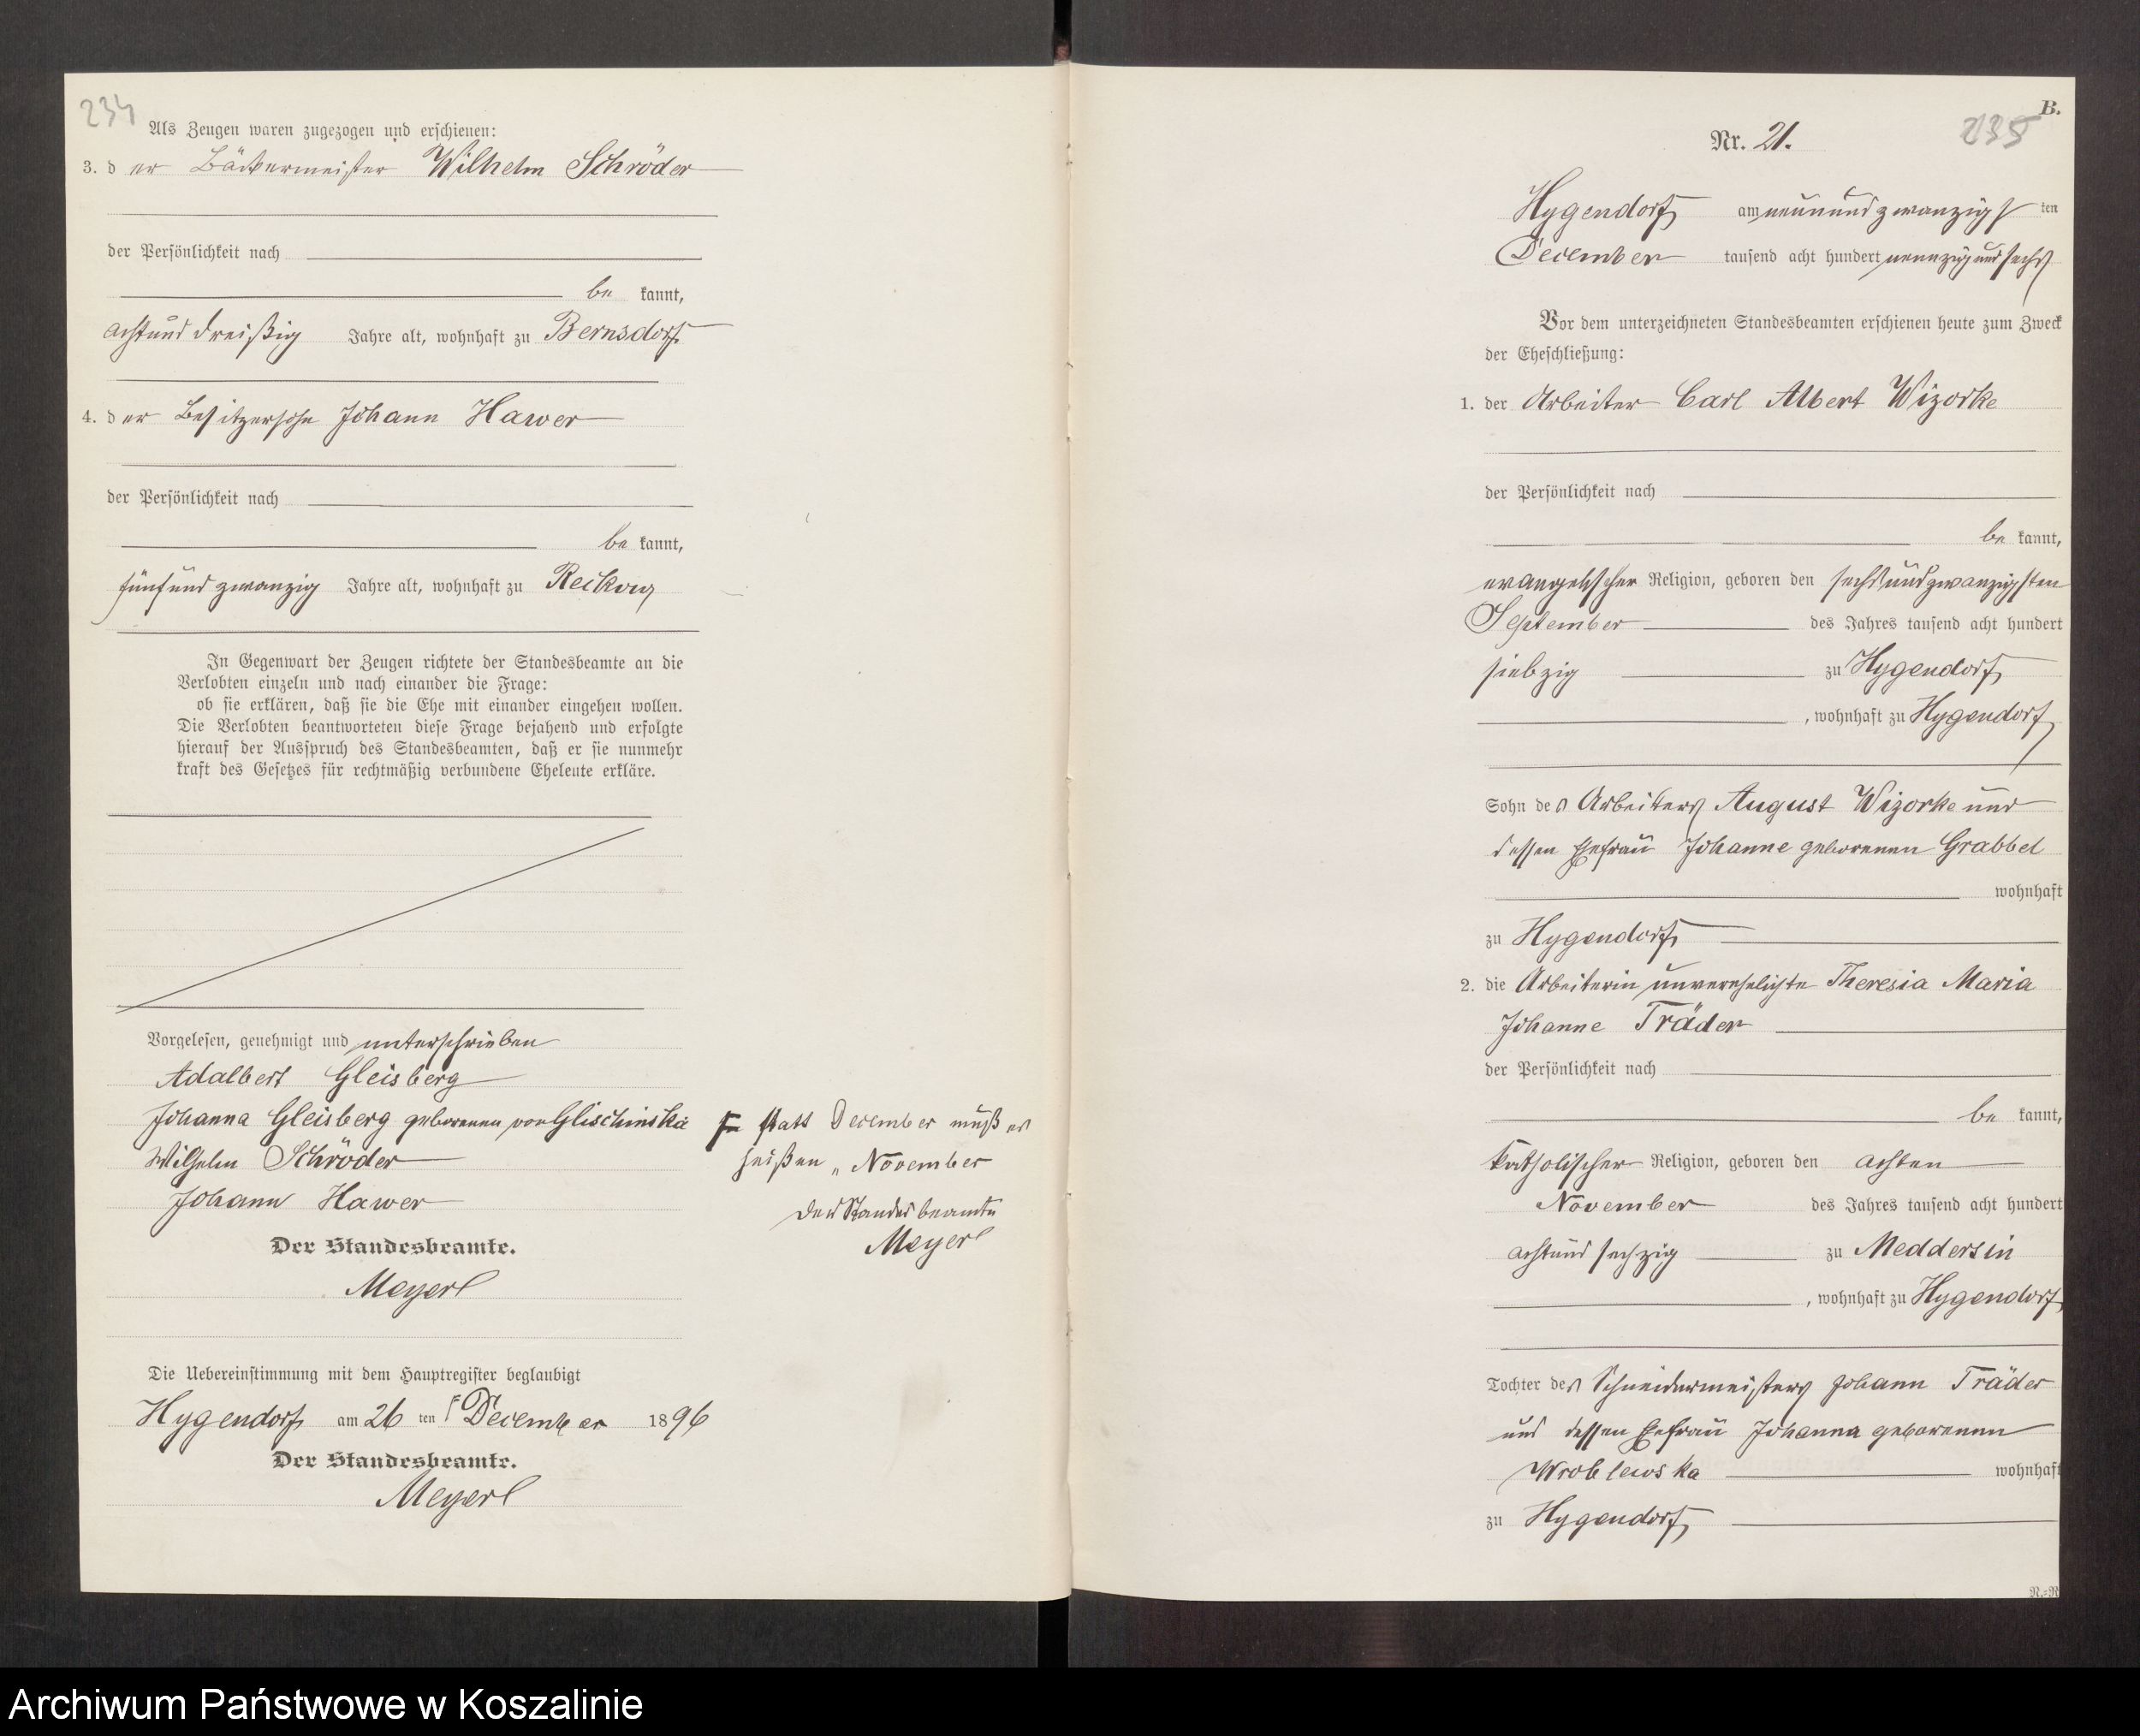 234
Als Zeugen waren zugezogen und erschienen:
3. d er Bäckermeister Wilhelm Schröder
der Persönlichkeit nach
be kannt,
achtund dreißig Jahre alt, wohnhaft zu Bernsdorf
4. d er Besitzersohn Johann Hawer
der Persönlichkeit nach
be kannt,
fünfundzwanzig Jahre alt, wohnhaft zu Reckow
In Gegenwart der Zeugen richtete der Standesbeamte an die
Verlobten einzeln und nach einander die Frage:
ob sie erklären, daß sie die Ehe mit einander eingehen wollen.
Die Verlobten beantworteten diese Frage bejahend und erfolgte
hierauf der Ausspruch des Standesbeamten, daß er sie nunmehr
kraft des Gesetzes für rechtmäßig verbundene Eheleute erkläre.
Vorgelesen, genehmigt und unterschrieben
Adalbert Gleisberg
Johanna Gleisberg geborenen von Glischinska
Wilhelm Schröder
Johann Hawer
Der Standesbeamte.
Meyerl
Die Uebereinstimmung mit dem Hauptregister beglaubigt
Hygendorf am 26 ten December 1896
Der Standesbeamte.
Meyerl
statt December muß es
heißen „ November
Der Standesbeamte
Meyerl
B.
235
Nr. 21.
Hygendorf am neunundzwanzigs ten
December tausend acht hundert neunzig und sechs
Vor dem unterzeichneten Standesbeamten erschienen heute zum Zweck
der Eheschließung:
1. der Arbeiter Carl Albert Wizorke
der Persönlichkeit nach
be kannt,
evangelischer Religion, geboren den sechsundzwanzigsten
September des Jahres tausend acht hundert
siebzig zu Hygendorf
, wohnhaft zu Hygendorf
Sohn des Arbeiters August Wizorke und
dessen Ehefrau Johanne geborenen Grabbel
wohnhaft
zu Hygendorf
2. die Arbeiterin unverehelichte Theresia Maria
Johanne Träder
der Persönlichkeit nach
be kannt,
katholischer Religion, geboren den achten
November des Jahres tausend acht hundert
achtund sechzig zu Meddersin
, wohnhaft zu Hygendorf
Tochter des Schneidermeisters Johann Träder
und dessen Ehefrau Johanna geborenen
Wroblewska wohnhaft
zu Hygendorf
Archiwum Państwowe w Koszalinie